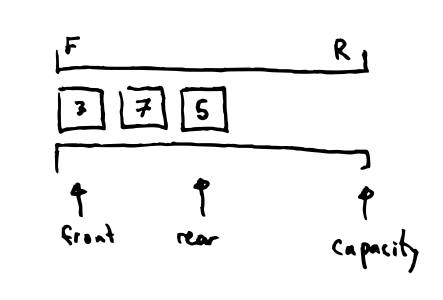 F R
3 7 5
front rear capacity